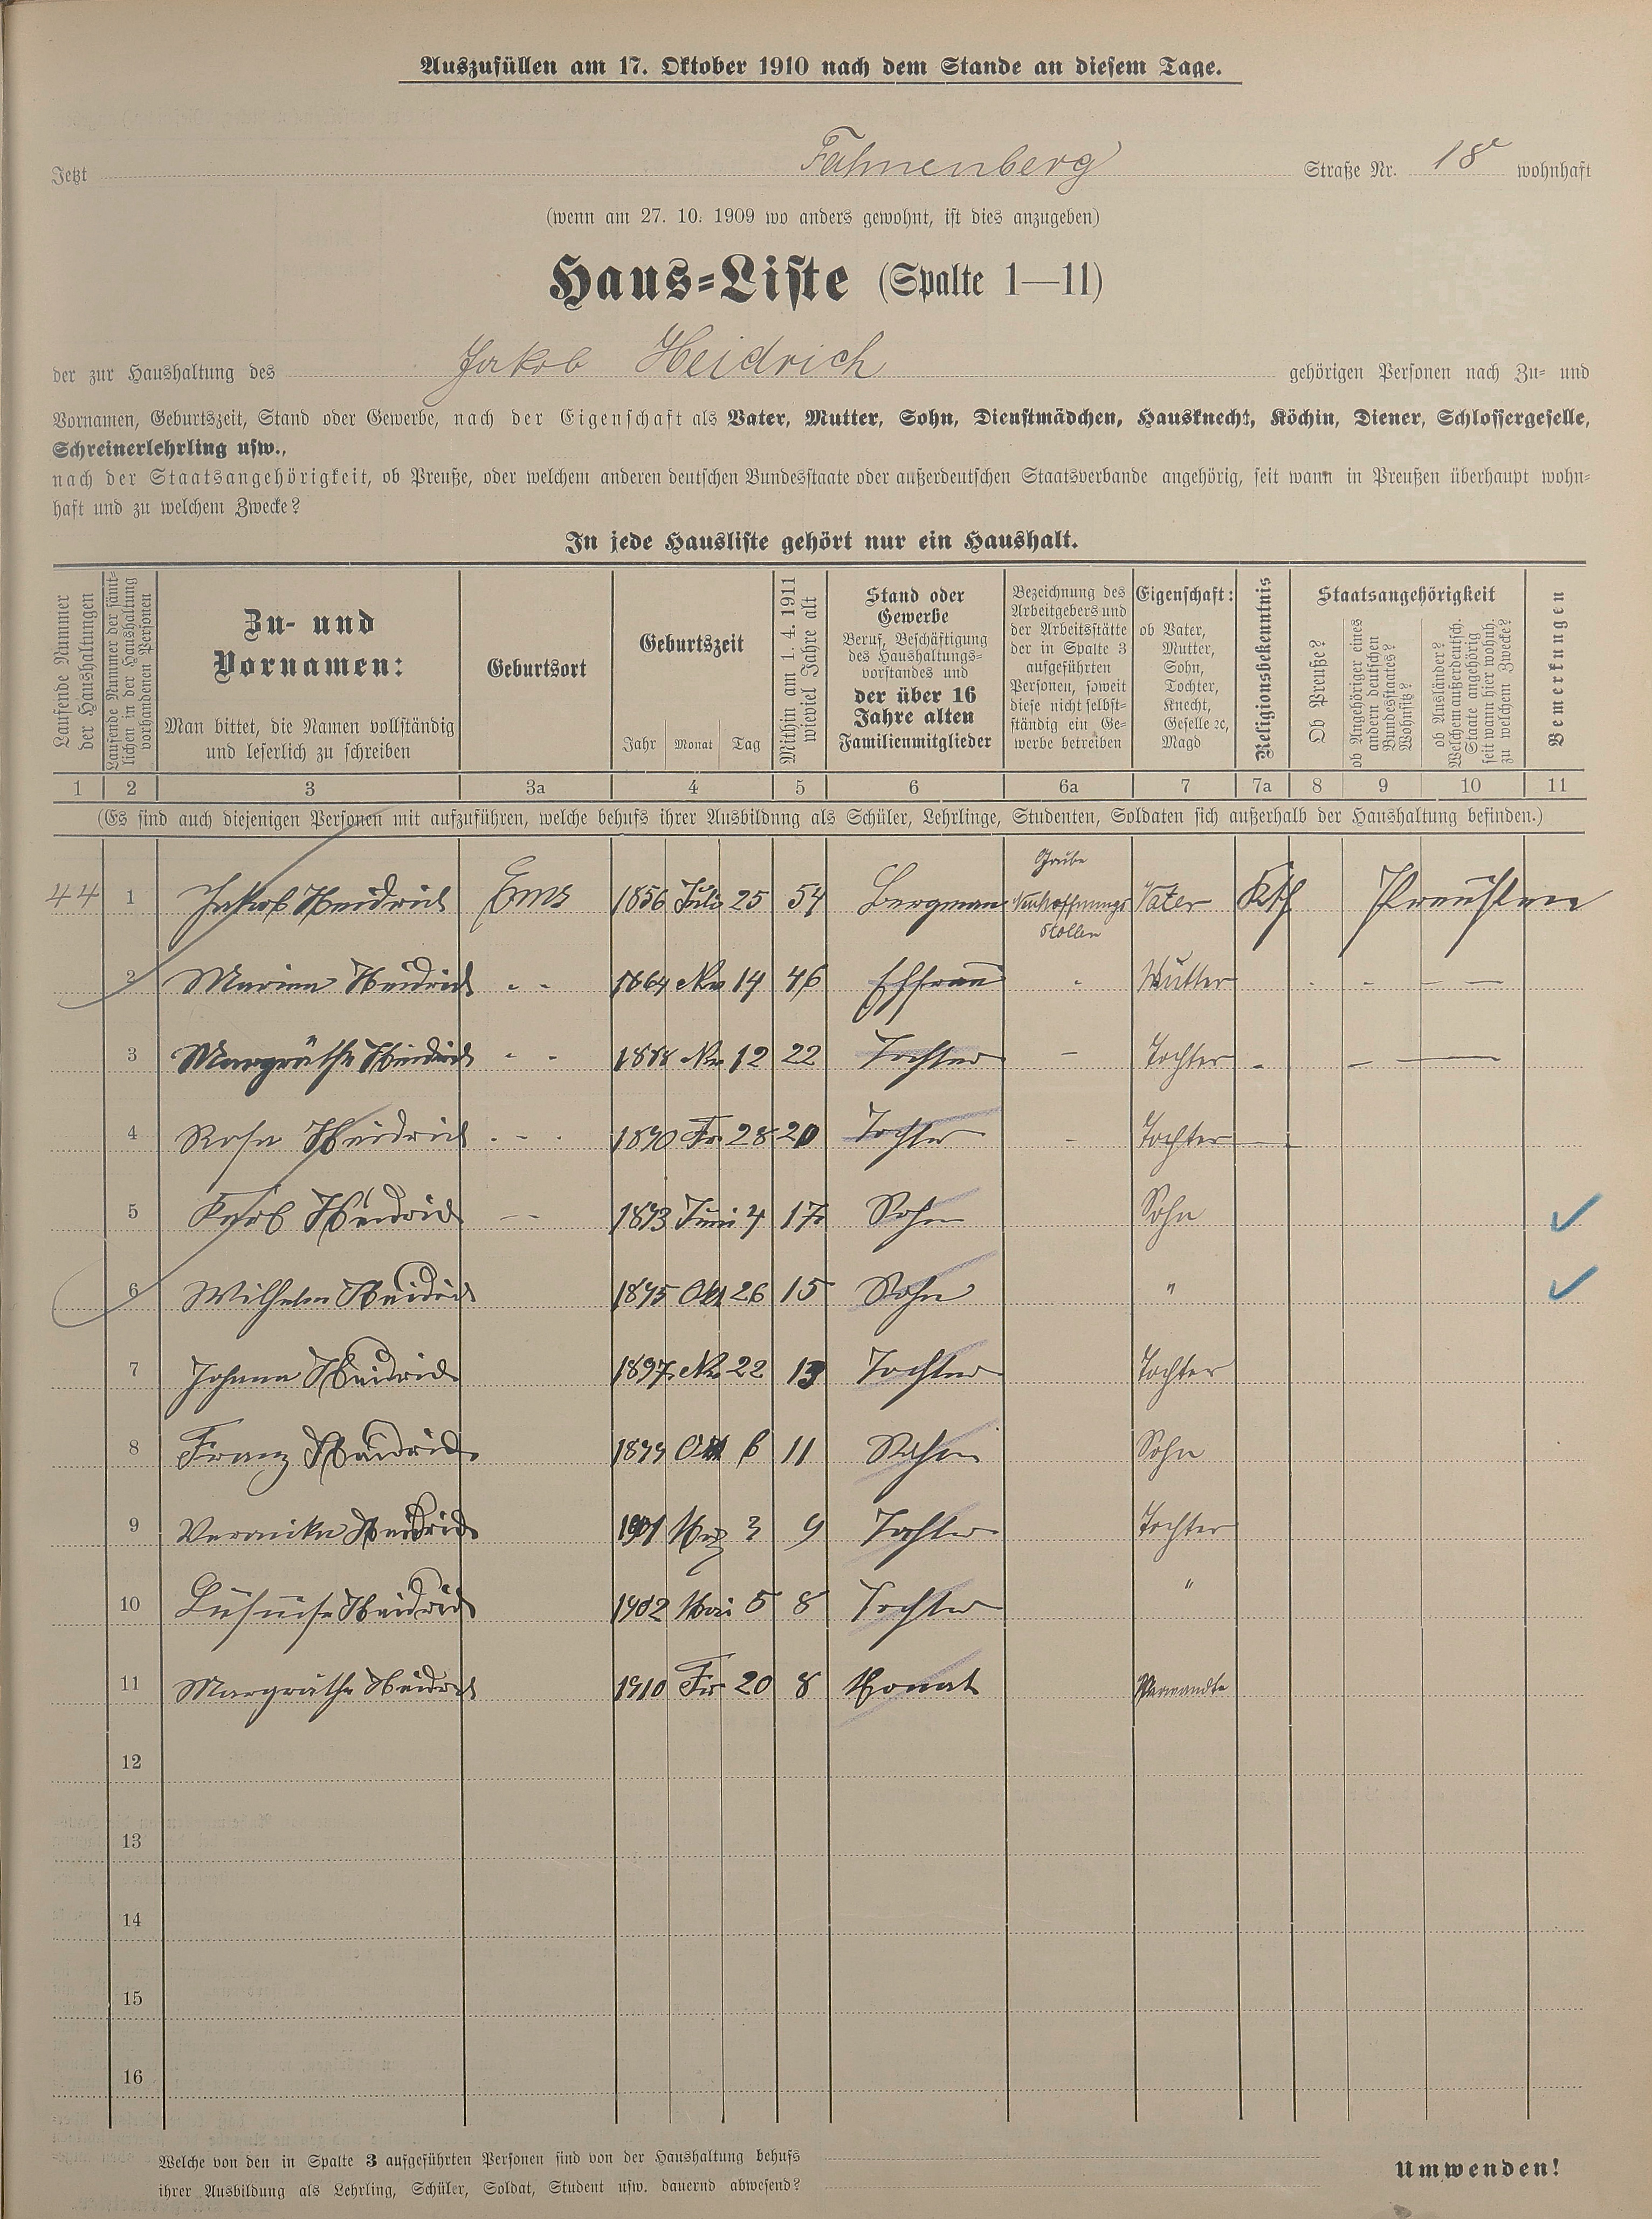 Auszufüllen am 17. Oktober 1910 nach dem Stande an diesem Tage.
Jetzt Fahnenberg Straße Nr. 18 wohnhaft
(wenn am 27. 10. 1909 wo anders gewohnt, ist dies anzugeben)
Haus-Liste (Spalte 1—11)
der zur Haushaltung des Jakob Heidrich gehörigen Personen nach Zu- und
Vornamen, Geburtszeit, Stand oder Gewerbe, nach der Eigenschaft als Vater, Mutter, Sohn, Dienstmädchen, Hausknecht, Köchin, Diener, Schlossergeselle,
Schreinerlehrling usw.,
nach der Staatsangehörigkeit, ob Preuße, oder welchem anderen deutschen Bundesstaate oder außerdeutschen Staatsverbande angehörig, seit wann in Preußen überhaupt wohn-
haft und zu welchem Zwecke?
In jede Hausliste gehört nur ein Haushalt.
Laufende Nummer
der Haushaltungen
Laufende Nummer der sämt-
lichen in der Haushaltung
vorhandenen Personen
Zu- und
Vornamen:
Man bittet, die Namen vollständig
und leserlich zu schreiben
Geburtsort
Geburtszeit
Jahr Monat Tag
Mithin am 1. 4. 1911
wieviel Jahre alt
Stand oder
Gewerbe
Beruf, Beschäftigung
des Haushaltungs-
vorstandes und
der über 16
Jahre alten
Familienmitglieder
Bezeichnung des
Arbeitgebers und
der Arbeitsstätte
der in Spalte 3
aufgeführten
Personen, soweit
diese nicht selbst-
ständig ein Ge-
werbe betreiben
Eigenschaft:
ob Vater,
Mutter,
Sohn,
Tochter,
Knecht,
Geselle ꝛc,
Magd
Religionsbekenntnis
Staatsangehörigkeit
Ob Preuße?
ob Angehöriger eines
andern deutschen
Bundesstaates?
Wohnsitz?
ob Ausländer?
Welchem außerdeutsch.
Staate angehörig
seit wann hier wohnh.
zu welchem Zwecke?
Bemerkungen
1 2 3 3a 4 5 6 6a 7 7a 8 9 10 11
(Es sind auch diejenigen Personen mit aufzuführen, welche behufs ihrer Ausbildung als Schüler, Lehrlinge, Studenten, Soldaten sich außerhalb der Haushaltung befinden.)
44 1 Jakob Heidrich Ems 1856 Juli 25 54 Bergman Grube Neuhoffnungs Stollen Vater Kth Preußen
2 Heidrich " " 1864 14 46 Ehfrau " Mutter
3 Margräthe Heidrich " " 1888 12 22 Tochter – Tochter
4 Rosa Heidrich " " 1890 28 20 Tochter – Tochter
5 Heidrich – – 1893 Juni 4 17 Sohn Sohn ✓
6 Wilhelm Heidrich 1895 Okt 26 15 Sohn " ✓
7 Johana Heidrich 1897 22 13 Tochter Tochter
8 Franz Heidrich 1899 Okt 6 11 Sohn Sohn
9 Veronika Heidrich 1901 Mrz 3 9 Tochter Tochter
10 Heidrich 1902 Mai 5 8 Tochter "
11 Margräthe Heidrich 1910 20 8 Monat Verwandte
12
13
14
15
16
Welche von den in Spalte 3 aufgeführten Personen sind von der Haushaltung behufs
ihrer Ausbildung als Lehrling, Schüler, Soldat, Student usw. dauernd abwesend?
Umwenden!